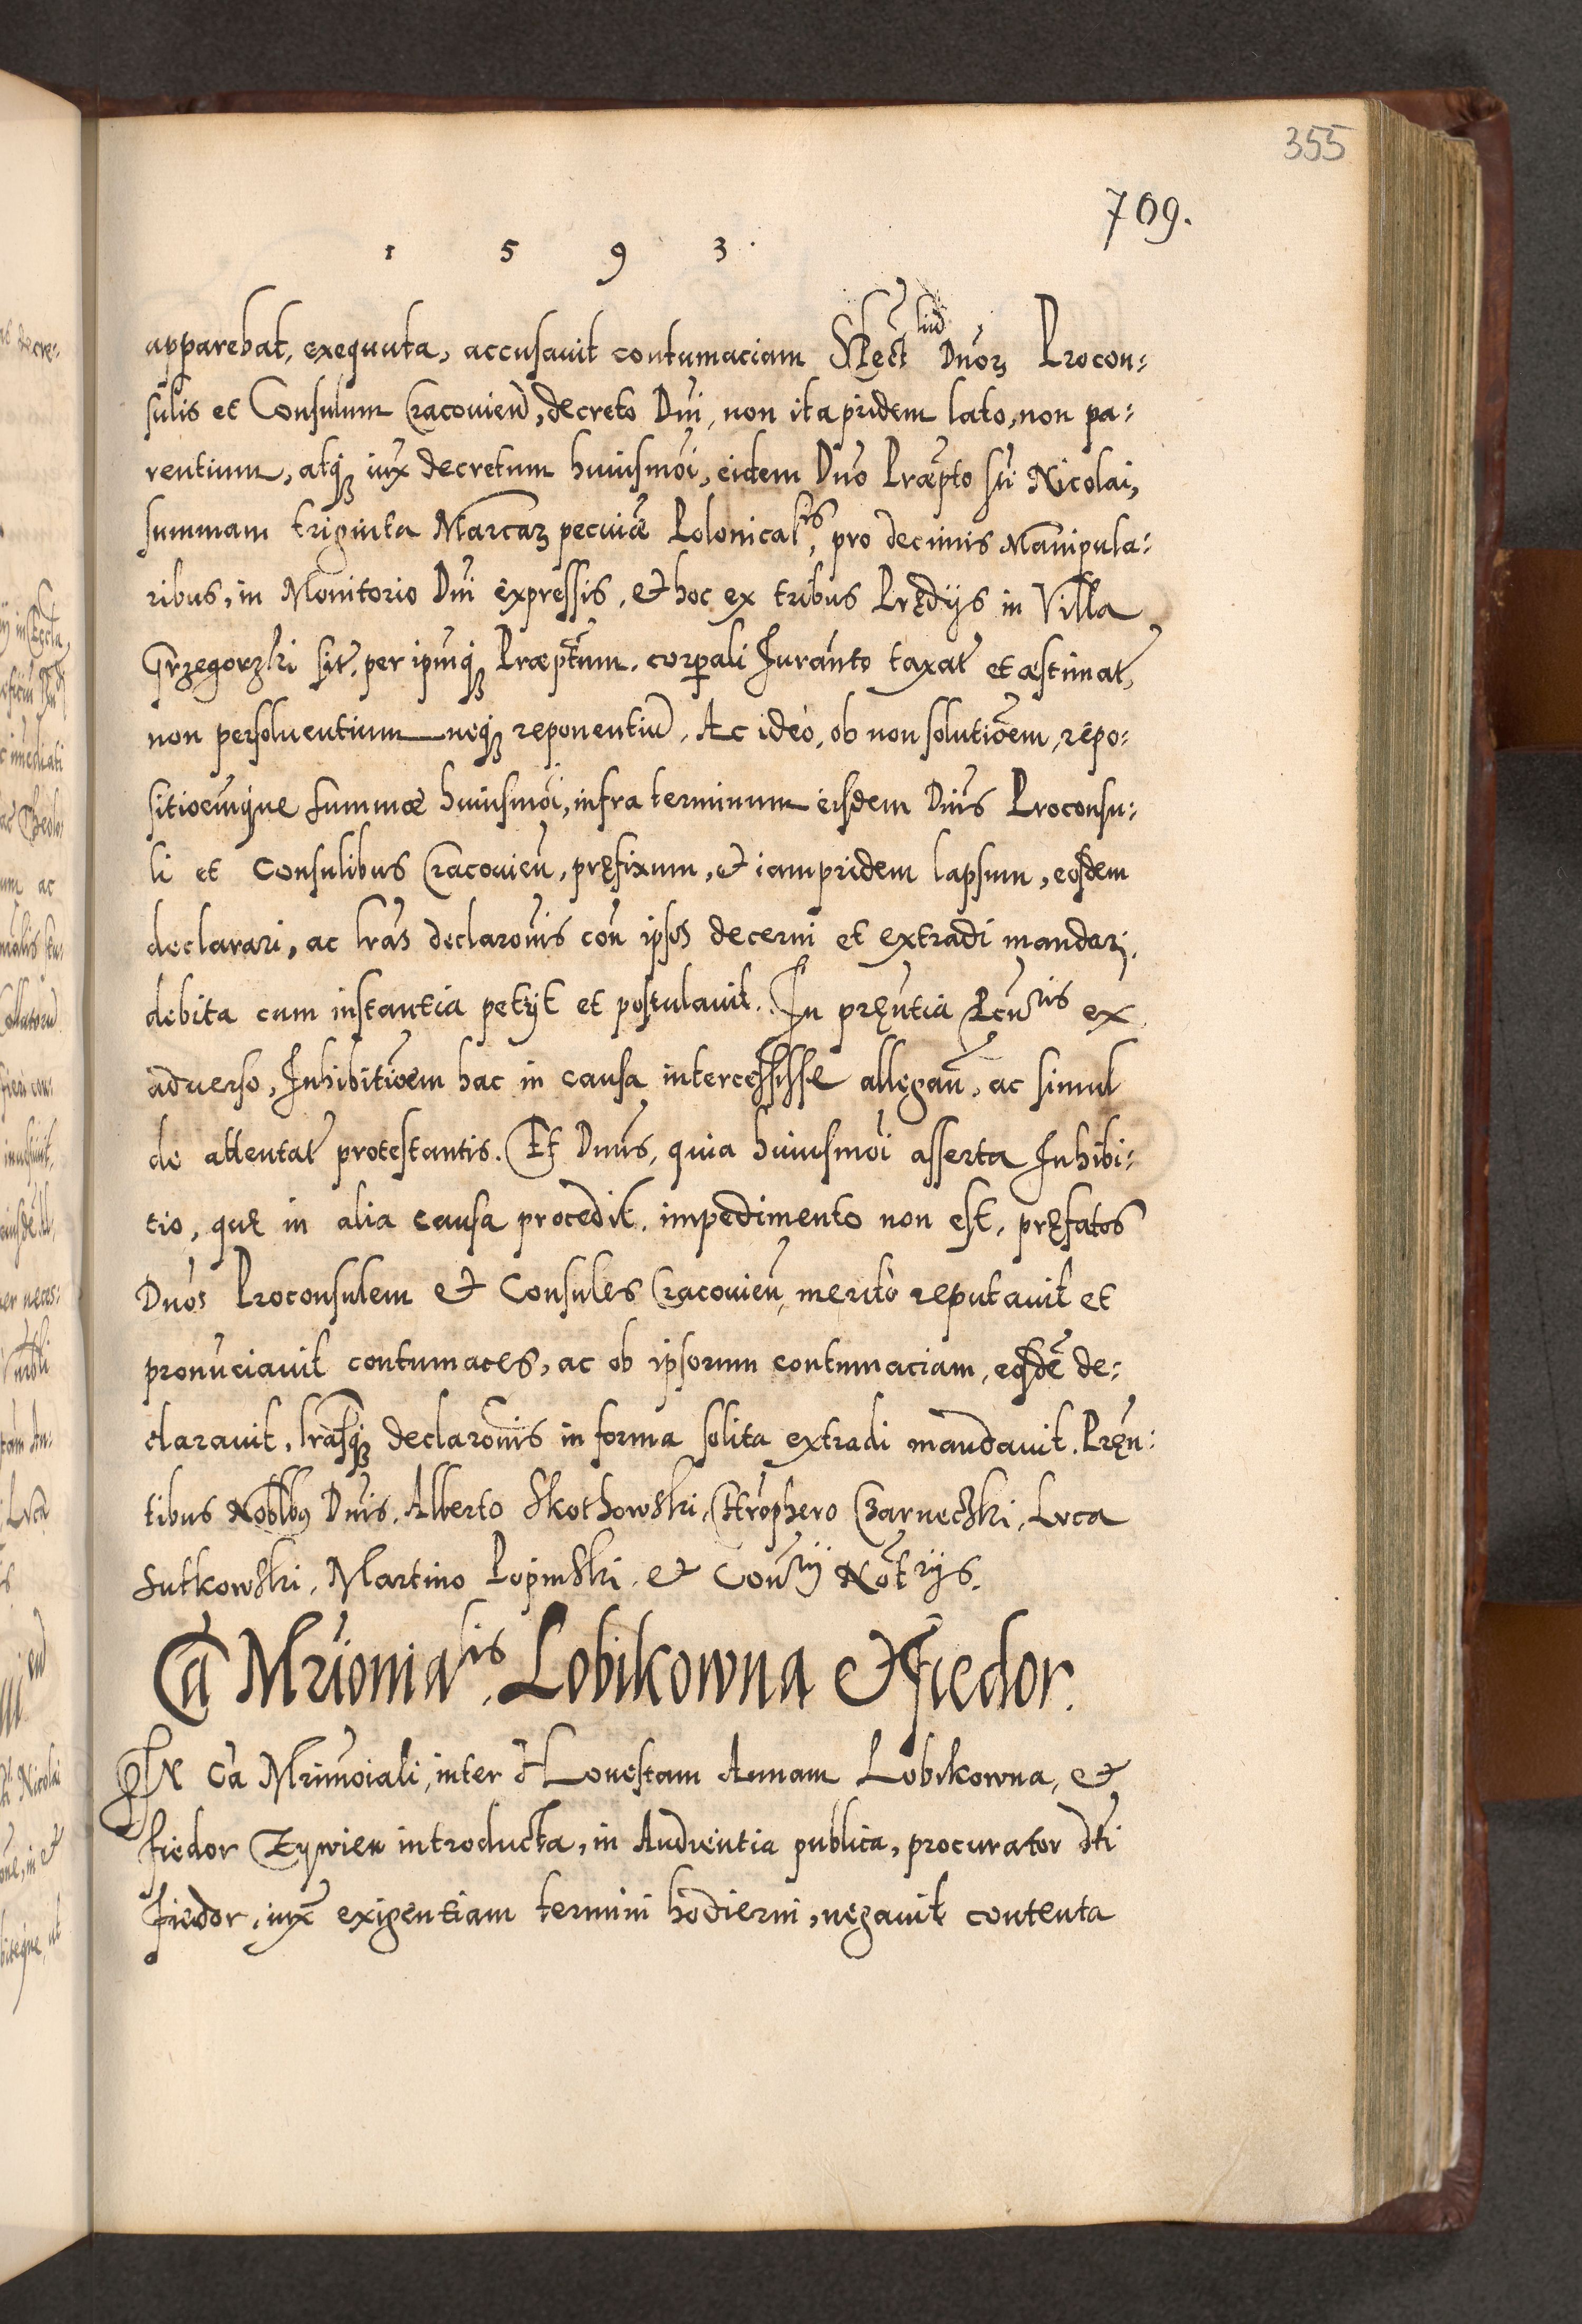 355
709.
1 5 9 3.
apparebat, exequuta, accusauit contumaciam Spect Dnorz Procon:
sulis et Consulum Cracouien, decreto Dni, non ita pridem lato, non pa:
rentium, atqз iux decretum huiusmoi, eidem Dno Præpto sti Nicolai,
summam triginta Marcarz pecuniæ Polonicalis, pro decimis Manipula:
ribus, in Monitorio Dni expressis, et hoc ex tribus Prędijs in Villa
Grzegorzki sit, per ipmqз Præptum, corpali Juranto taxat et æstimat,
non persoluentium neqз reponentiū. Ac ideo, ob non solutioem, repo:
sitioemqne summæ huiusmoi, infra terminum eisdem Dnis Proconsu:
li et Consulibus Cracouien, pręfixum, et iampridem lapsum, eosdem
declarari, ac lras declaronis con ipsos decerni et extradi mandari,
debita cum instantia petijt et postulauit. In pręntia Pcuris ex
aduerso, Inhibitioem hac in causa intercessisse allegan, ac simul
de attentat protestantis. Et Dnus, quia huiusmoi asserta Inhibi:
tio, quę in alia causa procedit, impedimento non est, pręfatos
Dnos Proconsulem et Consules Cracouien, merito reputauit et
pronuciauit contumaces, ac ob ipsorum contumaciam, eosdē de:
clarauit, lrasqз declaronis in forma solita extradi mandauit. Pręn:
tibus Noblbus Dnis, Alberto Skothowski, Chrophero Czarnecki, Luca
Sutkowski, Martino Lopinski, et Conrij Notrijs.
Ca Mrionialis, Lobikowna et Fiedor.
IN Ca Mrimoiali, inter Honestam Annam Lobikowna, et
Fiedor Zywien introducta, in Audientia publica, procurator dti
Fiedor, iux exigentiam termini hodierni, negauit contenta